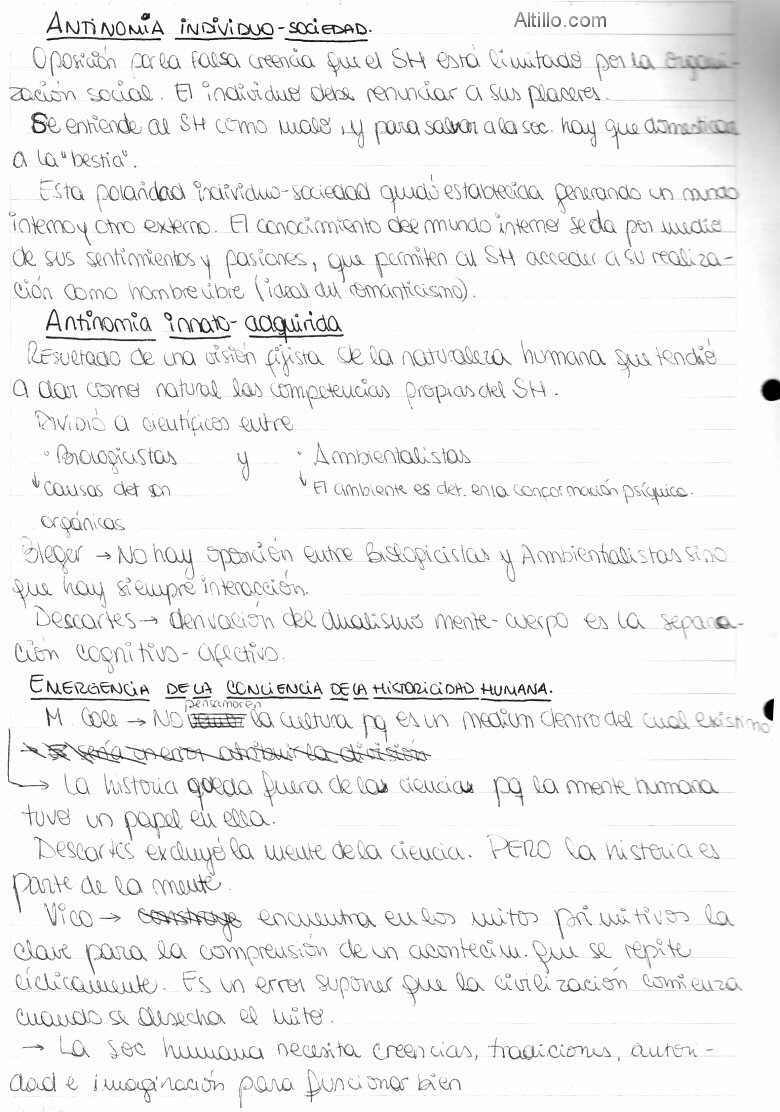 Altillo.com
ANTINOMIA INDIVIDUO-SOCIEDAD.
Oposición por la falsa creencia que el SH está limitado por la organi-
zación social. El individuo debe renunciar a sus placeres.
Se entiende al SH como malo, y para salvar a la soc. hay que domesticar
a la "bestia".
Esta polaridad individuo-sociedad quedó establecida generando un mundo
interno y otro externo. El conocimiento del mundo interno se da por medio
de sus sentimientos y pasiones, que permiten al SH acceder a su realiza-
ción como hombre libre (ideal del romanticismo).
Antinomia innato-adquirida
Resultado de una visión fijista de la naturaleza humana que tendió
a dar como natural las competencias propias del SH.
Dividió a científicos entre
· Biologicistas y · Ambientalistas
↓ causas det son ↓ El ambiente es det. en la conformación psíquica.
orgánicas
Bleger → No hay oposición entre Biologicistas y Ambientalistas sino
que hay siempre interacción.
Descartes → derivación del dualismo mente-cuerpo es la separa-
ción cognitivo-afectivo.
EMERGENCIA DE LA CONCIENCIA DE LA HISTORICIDAD HUMANA.
M. Cole → No pensamos en la cultura pq es un medium dentro del cual existimos
→ La historia queda fuera de las ciencias pq la mente humana
tuvo un papel en ella.
Descartes excluyó la mente de la ciencia. PERO la historia es
parte de la mente.
Vico → encuentra en los mitos primitivos la
clave para la comprensión de un acontecim. que se repite
cíclicamente. Es un error suponer que la civilización comienza
cuando se desecha el mito.
→ La soc humana necesita creencias, tradiciones, autori-
dad e imaginación para funcionar bien